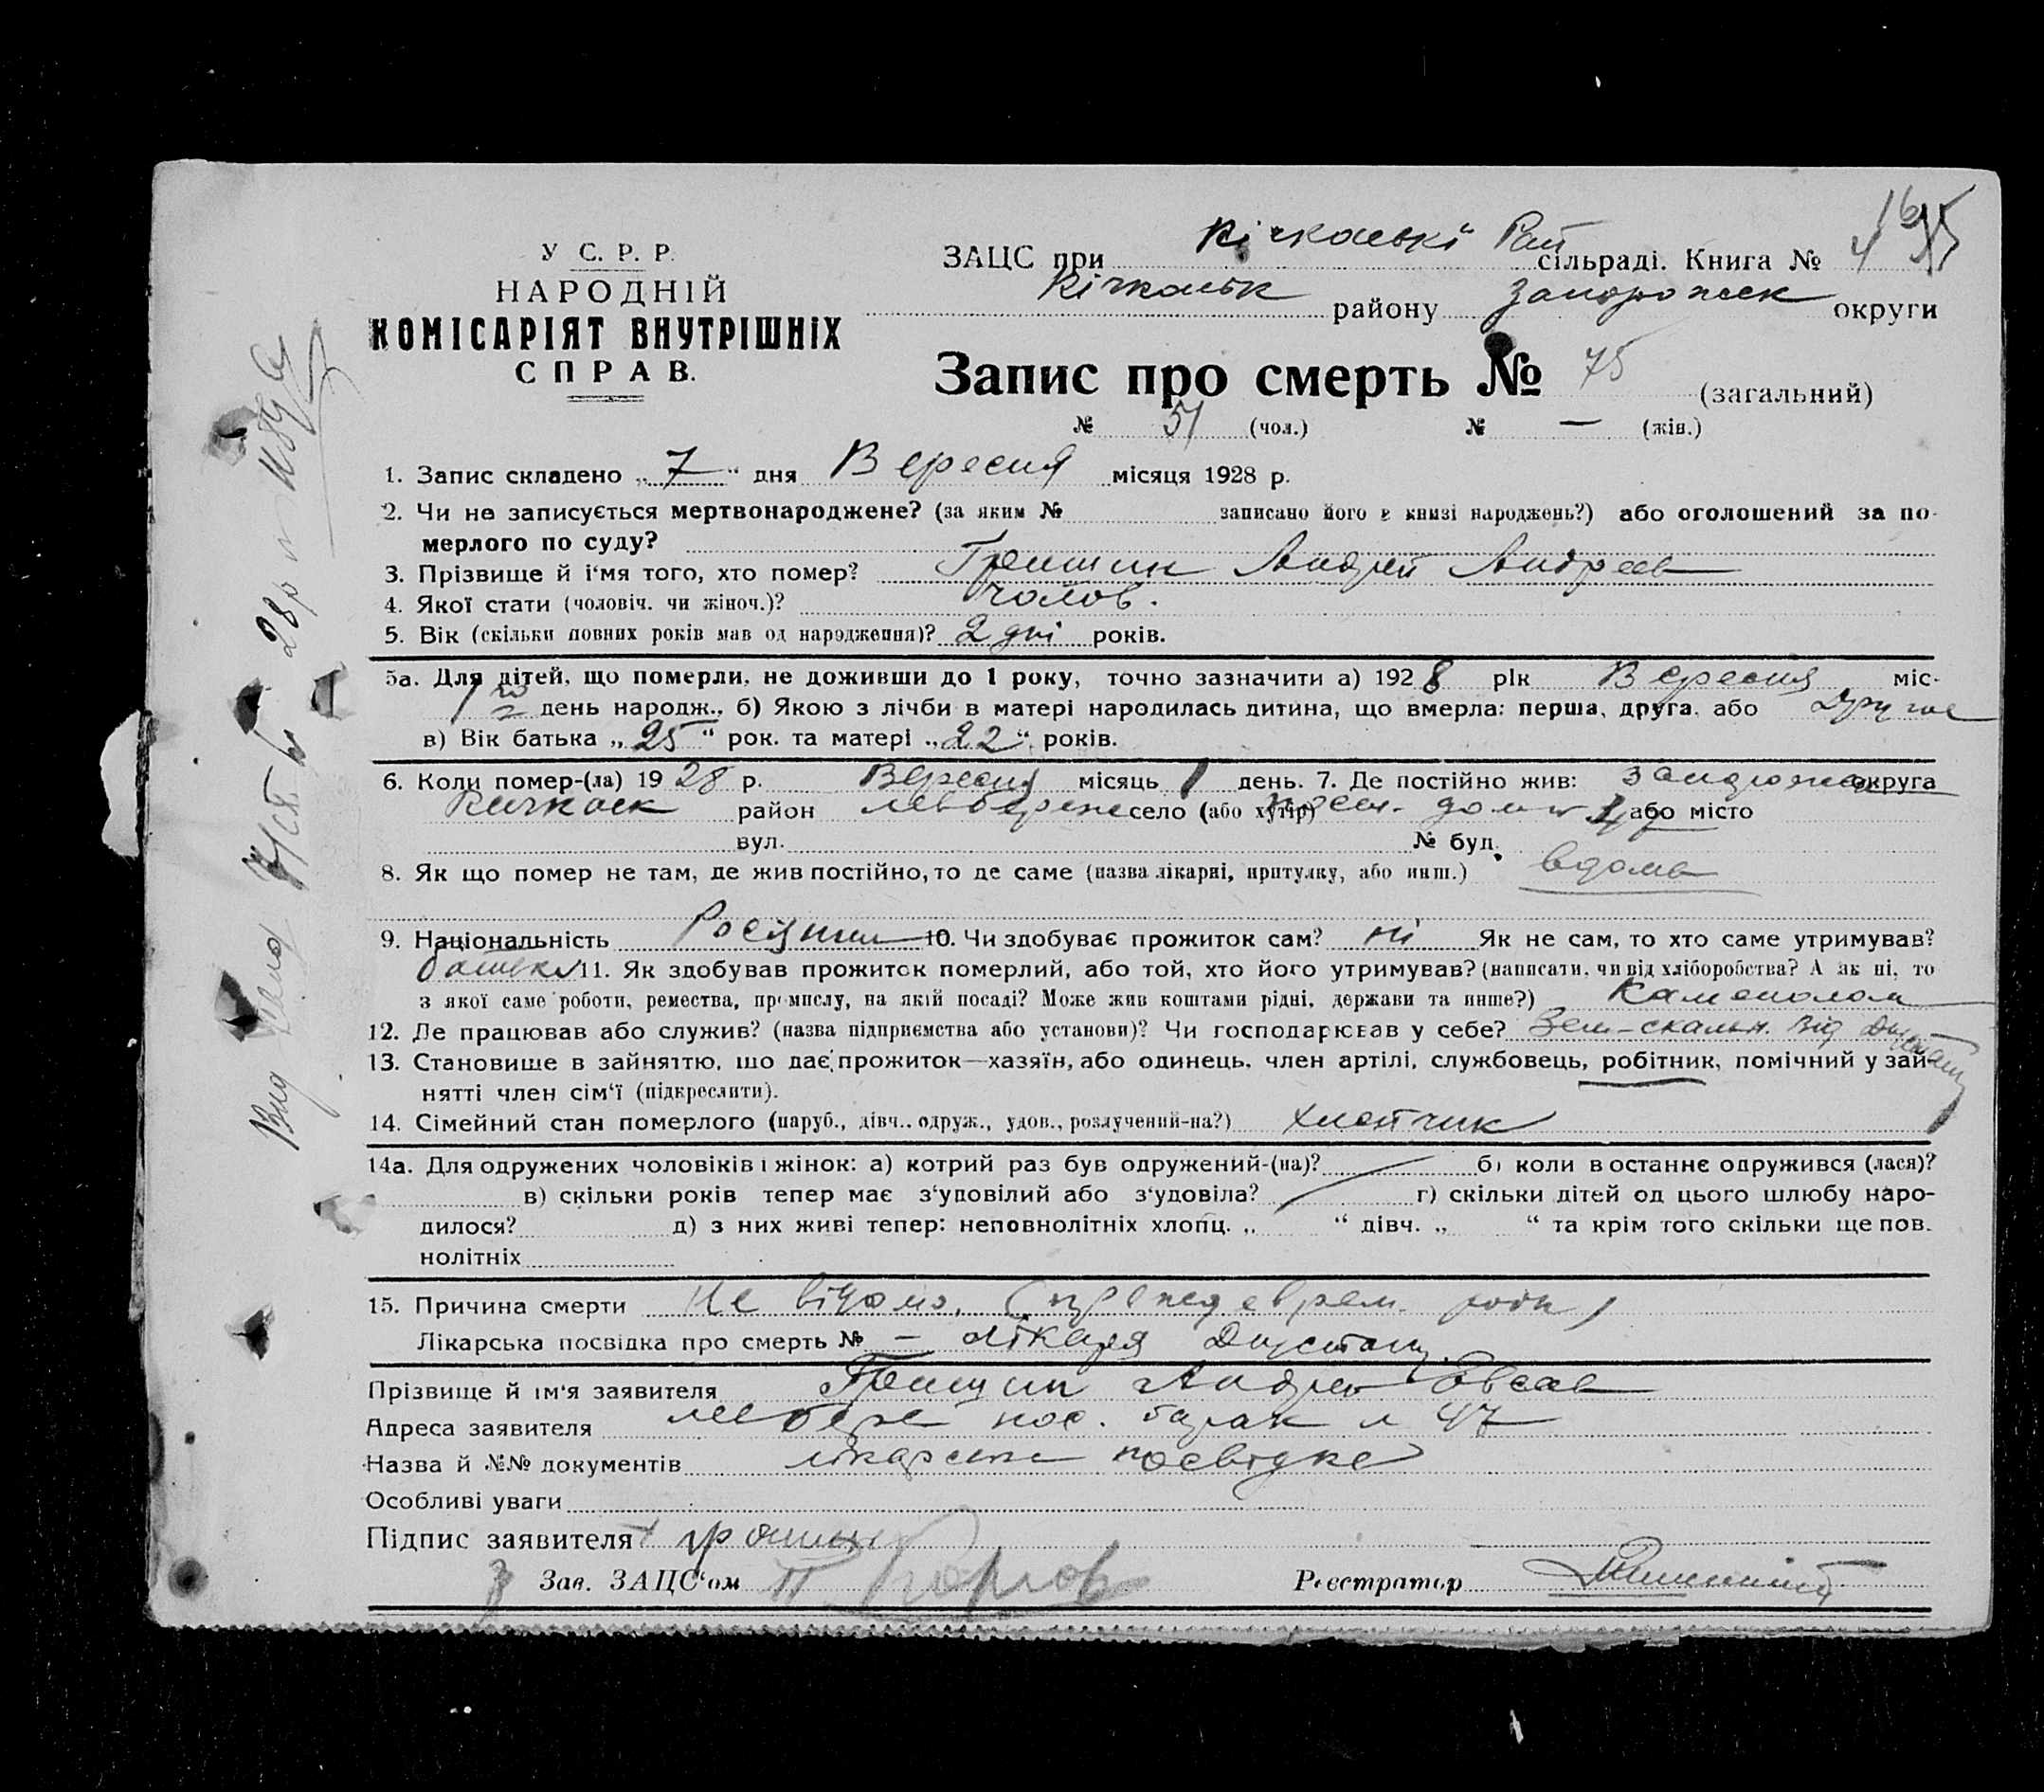 У С. Р. Р.
НАРОДНІЙ
КОМІСАРІЯТ ВНУТРІШНІХ
СПРАВ.
ЗАЦС при Кічкаські Рай сільраді. Книга № 4
Кічкаськ району Запорожск округи
Запис про смерть № 75 (загальний)
№ 51 (чол.) № — (жін.)
1. Запис складено „7“ дня Вересня місяця 1928 р.
2. Чи не записується мертвонароджене? (за яким № записано його в книзі народжень?) або оголошений за по-
мерлого по суду?
3. Прізвище й і‘мя того, хто помер? Андрей Андреев
4. Якої стати (чоловіч. чи жіноч.)? чолов.
5. Вік (скільки повних років мав од народження)? 2 дні років.
5а. Для дітей, що померли, не доживши до 1 року, точно зазначити а) 1928 рік Вересня міс-
1го день народж., б) Якою з лічби в матері народилась дитина, що вмерла: перша, друга, або другое
в) Вік батька „25“ рок. та матері „22“ років.
6. Коли помер-(ла) 1928 р. Вересня місяць день. 7. Де постійно жив: Запорожск округа
Кичкаск район левобереж село (або хутір) або місто
вул. № буд.
8. Як що помер не там, де жив постійно, то де саме (назва лікарні, притулку, або инш.) вдома
9. Національність Росіянин 10. Чи здобуває прожиток сам? ні Як не сам, то хто саме утримував?
батько 11. Як здобував прожиток померлий, або той, хто його утримував? (написати, чи від хліборобства? А як ні, то
з якої саме роботи, ремества, промислу, на якій посаді? Може жив коштами рідні, держави та инше?) Каменолом
12. Де працював або служив? (назва підприємства або установи)? Чи господарював у себе? Зем-скальн. від
13. Становище в зайняттю, що дає прожиток—хазяїн, або одинець, член артілі, службовець, робітник, помічний у зай-
нятті член сім‘ї (підкреслити).
14. Сімейний стан померлого (паруб., дівч., одруж., удов., розлучений-на?) хлопчик
14а. Для одружених чоловіків і жінок: а) котрий раз був одружений-(на)? б) коли востаннє одружився (лася)?
в) скільки років тепер має з‘уповілий або з‘удовіла? г) скільки дітей од цього шлюбу наро-
дилося? д) з них живі тепер: неповнолітніх хлопц. „ “ дівч. „ “ та крім того скільки ще пов.
нолітніх
15. Причина смерти Не відомо,
Лікарська посвідка про смерть № — лікаря
Прізвище й ім‘я заявителя Андрей
Адреса заявителя левобереж пос. барак № 47
Назва й №№ документів лікарська посвідка
Особливі уваги
Підпис заявителя
Зав. ЗАЦС‘ом
Реєстратор